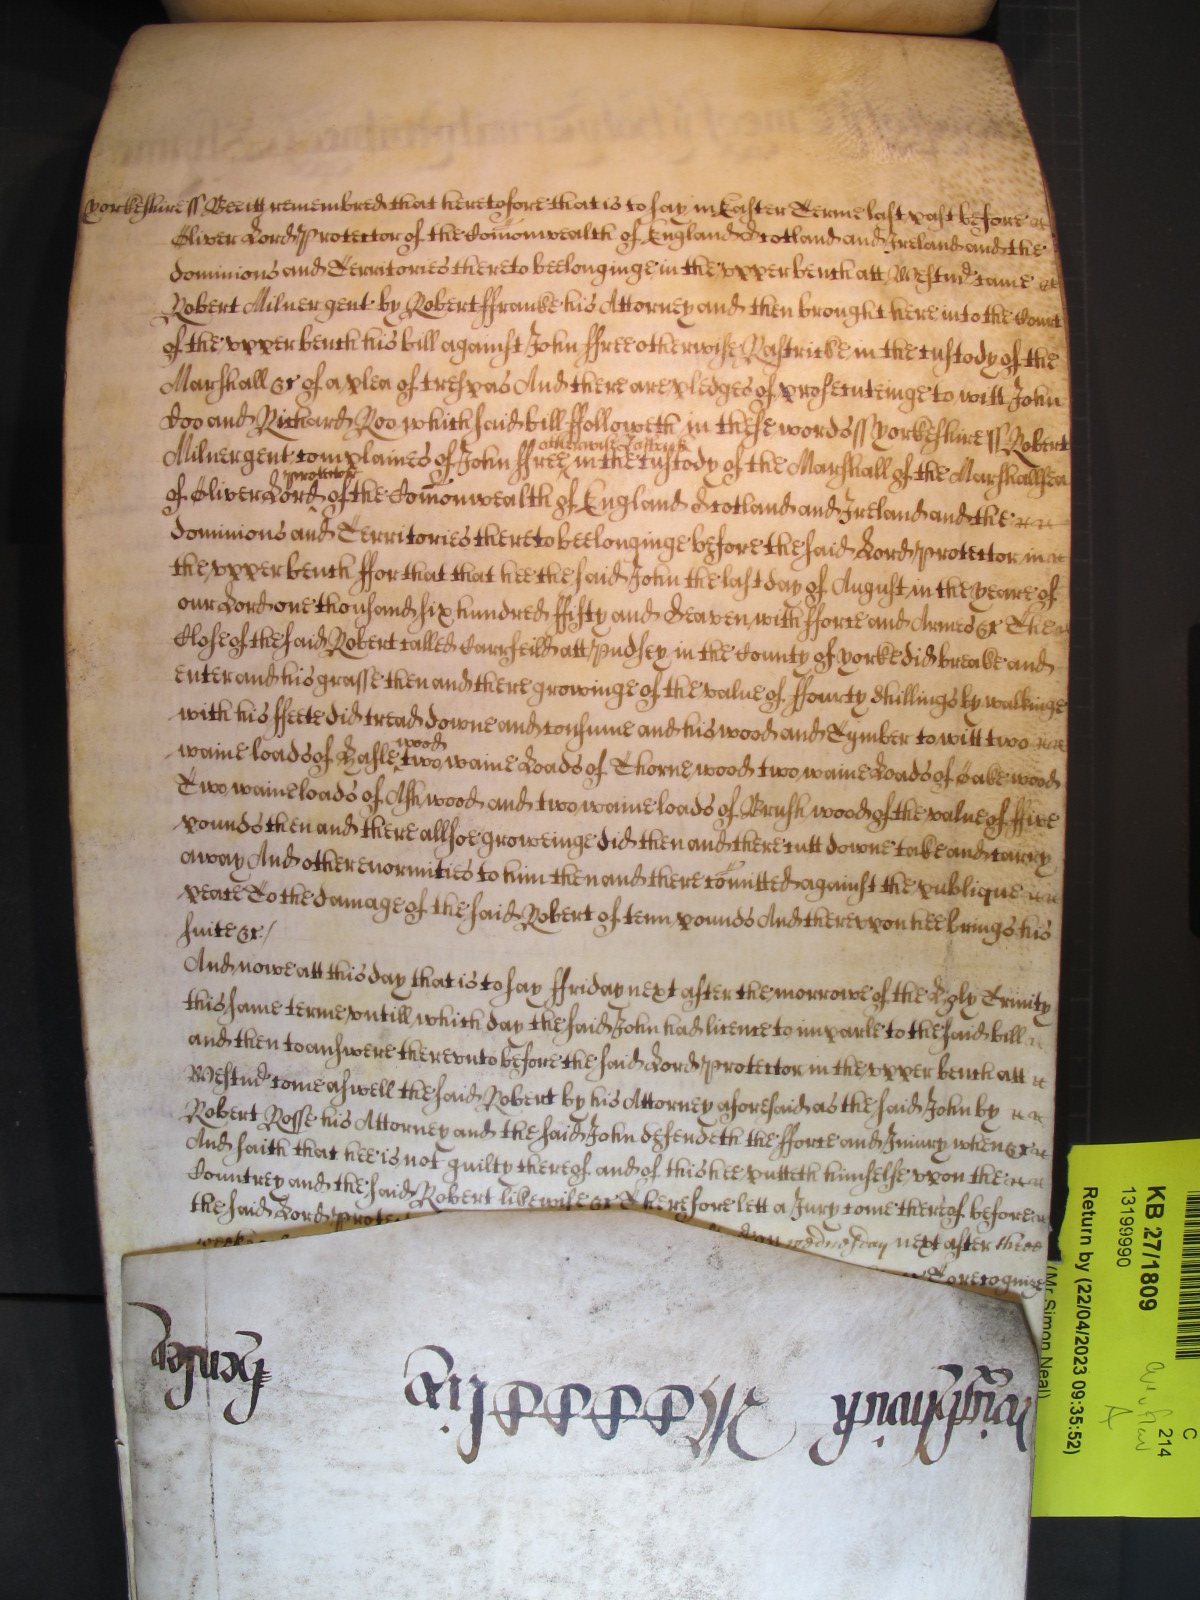 yorkeshire ss Bee itt remembred that heretofore that is to say in Easter Terme last past before
Oliver Lord Protector of the Comonwealth of England Scotland and Ireland and the
dominions and Territories thereto beelonginge in the vpper bench att Westmr came
Robert Milner gent by Robert ffranke his Attorney and then brought here into the Court
of the vpper bench his bill against John ffree otherwise Rastricke in the custody of the
Marshall &c of a plea of trespas And there are pledges of prosecuteinge to witt John
Doo and Richard Roo which said bill ffolloweth in these words ss yorkeshire ss Robert
Milner gent complaines of John ffree otherwise Rastrick in the custody of the Marshall of the Marshallsea
of Oliver Lord protector of the Comonwealth of England Scotland and Ireland and the
dominions and Territories thereto beelonginge before the said Lord Protector in
the vpper bench ffor that that hee the said John the last day of August in the yeare of
our Lord one thousand six hundred ffifty and Seaven with fforce and Armes &c The
Close of the said Robert called Carrfeild att Pudsey in the County of yorke did breake and
enter and his grasse then and there growinge of the value of ffourty shillings by walkinge
with his ffeete did tread downe and consume and his wood and Tymber to witt two
waine loads of Hasle wood two waine Loads of Thorne wood two waine Loads of Oake wood
Two waine loads of Ash wood and two waine loads of Brush wood of the value of ffive
pounds then and there allsoe groweinge did then and there cutt downe take and carry
away And other enormities to him then and there comitted against the publique
peace To the damage of the said Robert of tenn pounds And therevpon hee brings his
suite &c /
And nowe att this day that is to say ffriday next after the morrowe of the Holy Trinity
this same terme vntill which day the said John had licence to imparle to the said bill
and then to answere therevnto before the said Lord Protector in the vpper bench att
Westmr come aswell the said Robert by his Attorney aforesaid as the said John by
Robert Rosse his Attorney and the said John defendeth the fforce and Iniury when &c
And saith that hee is not guilty thereof and of this hee putteth himselfe vpon the
Countrey and the said Robert likewise &c Therefore lett a Jury come thereof before
the said Lord Protec
wednesday next after three
To recognize
KB 27/1809
13199990
Return by (22/04/2023 09:35:52)
(Mr Simon Neal)
C
214